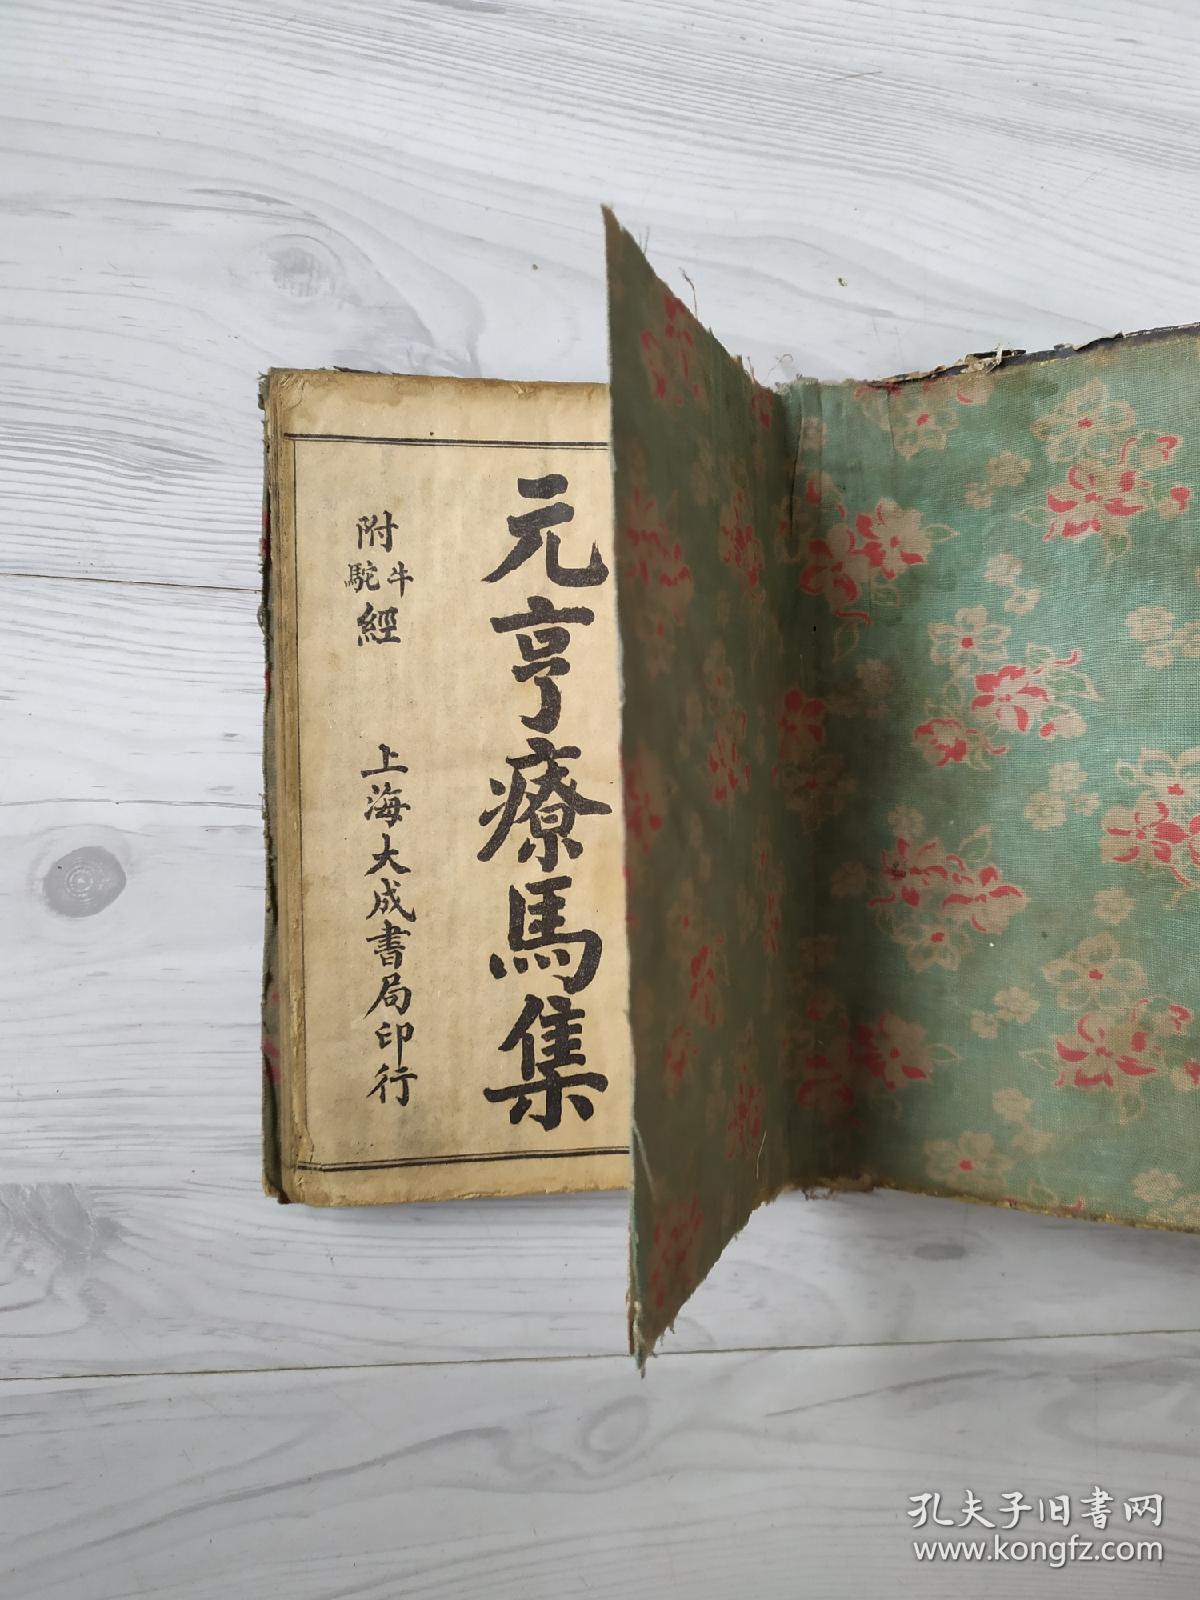 元亨療馬集
附牛駝經
上海大成書局印行
孔夫子旧書网
www.kongfz.com